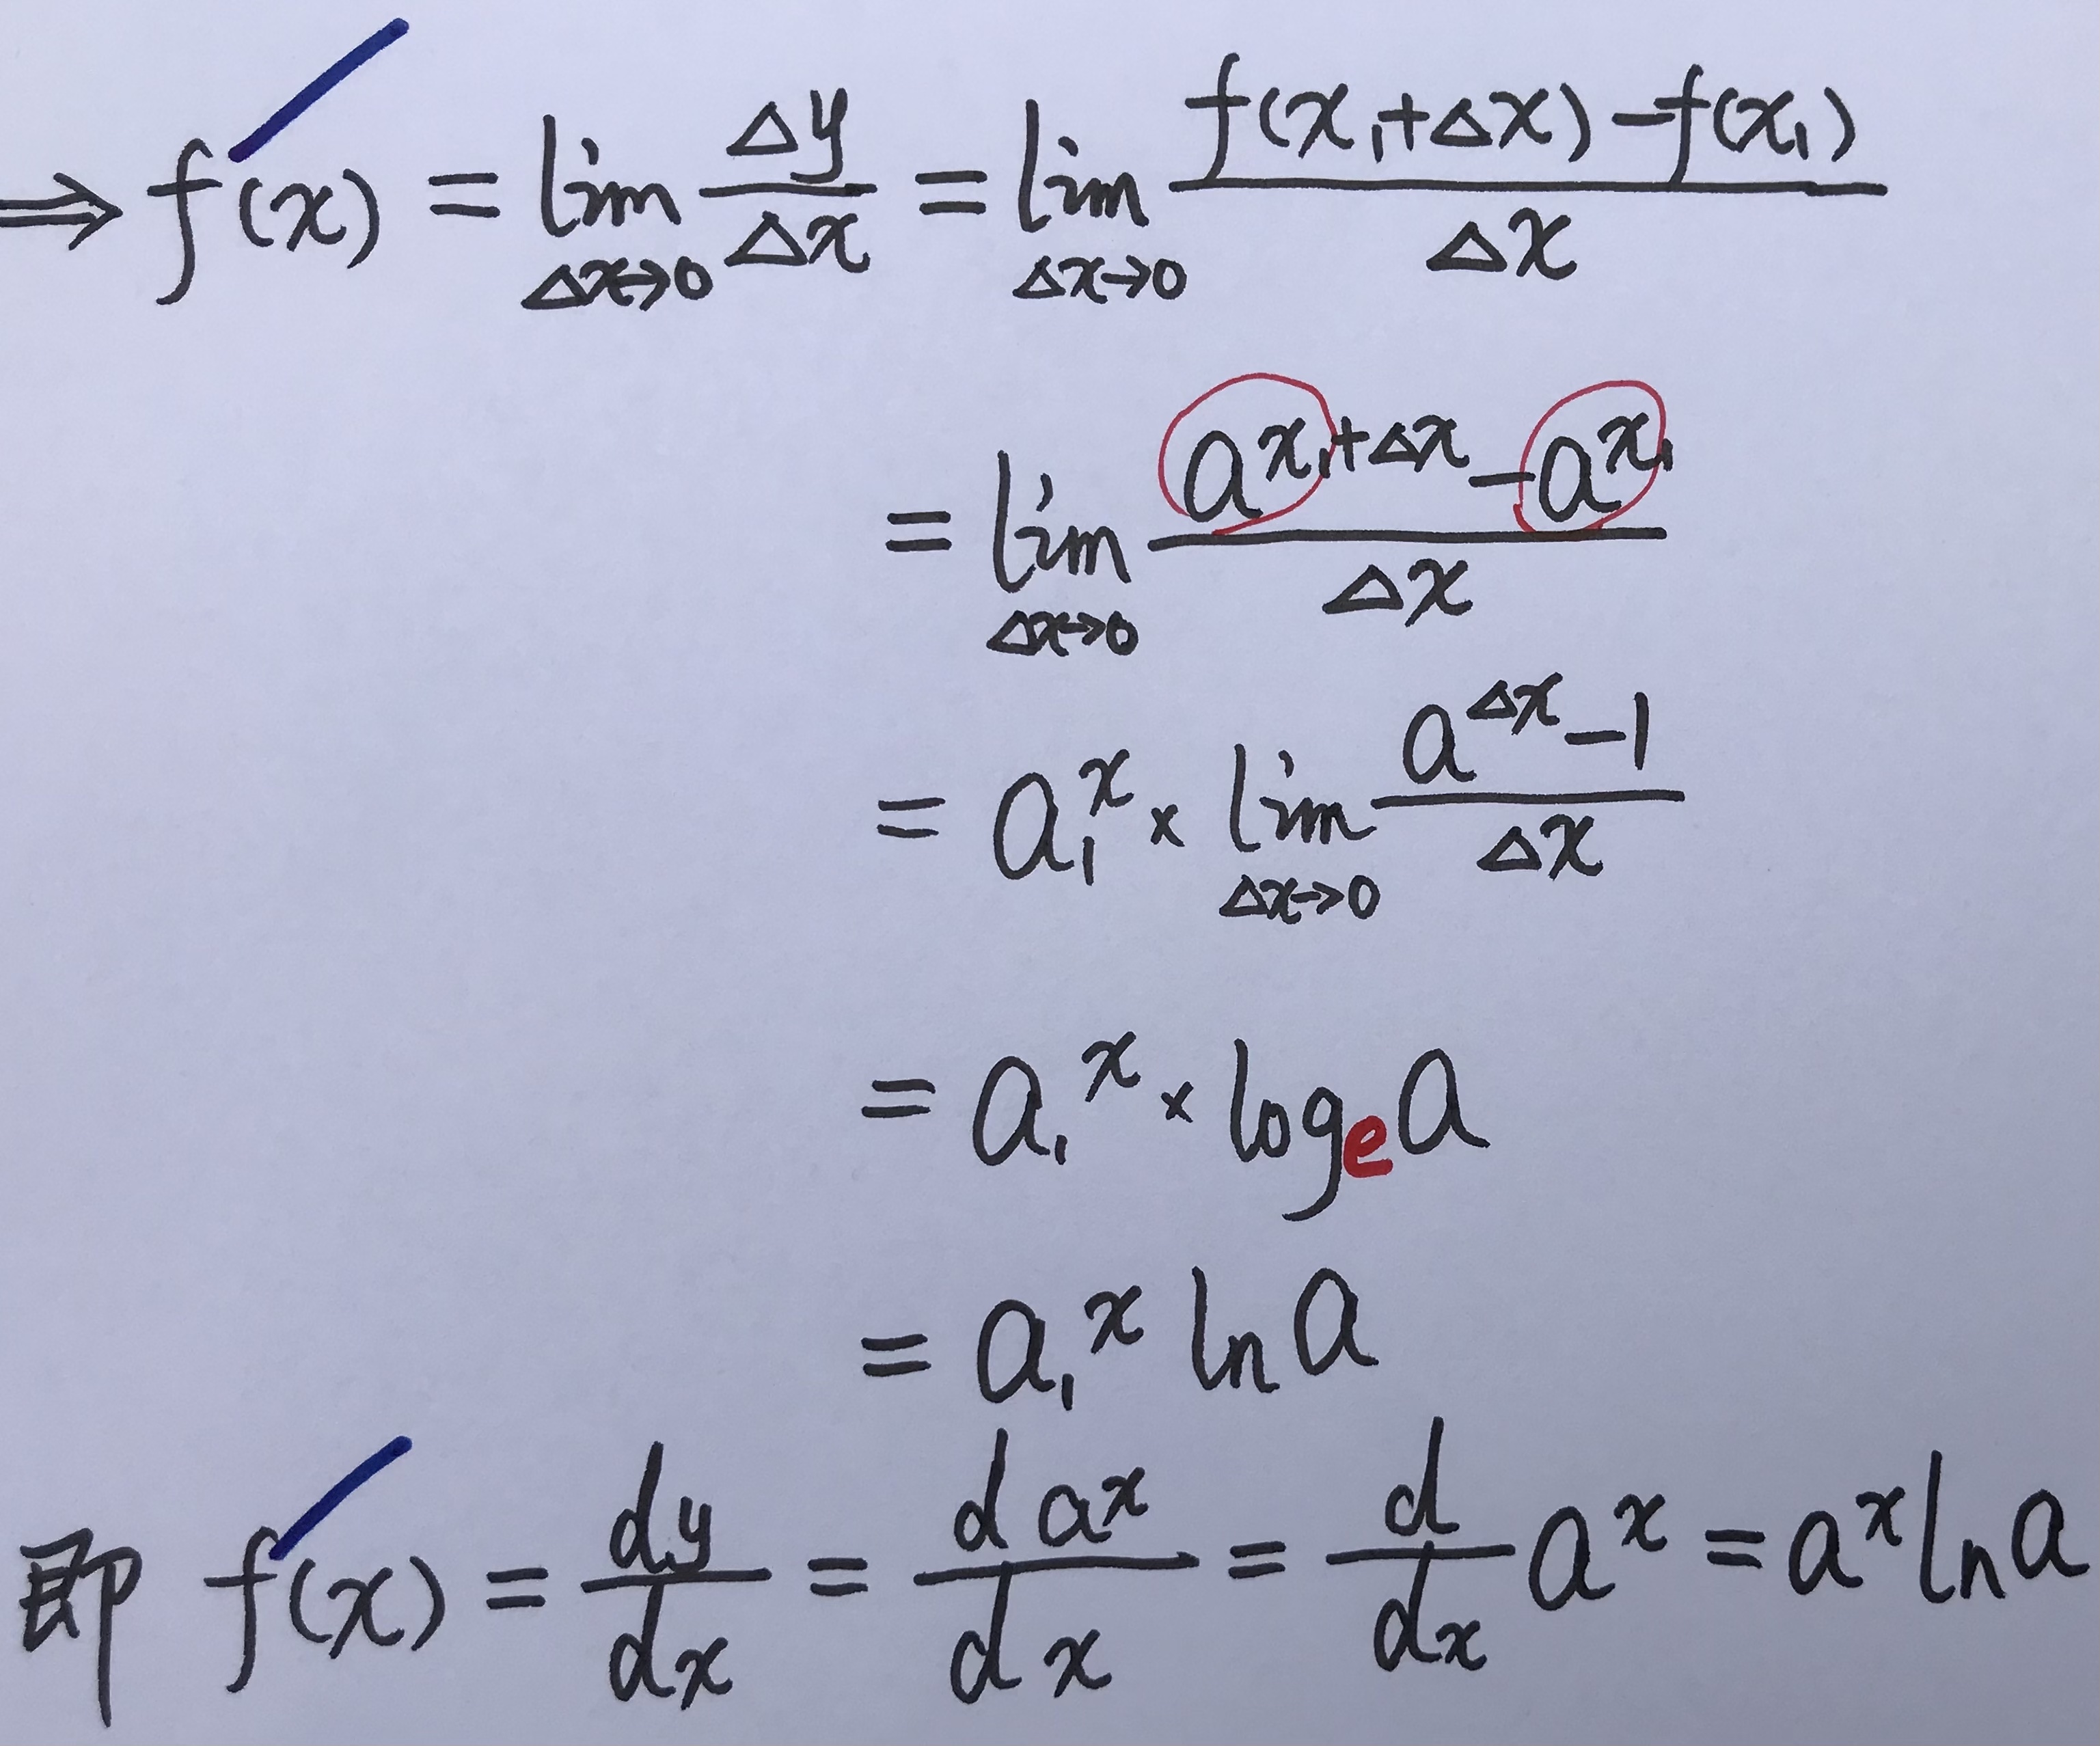 ⇒ f′(x) = lim_{Δx→0} Δy/Δx = lim_{Δx→0} (f(x₁+Δx) − f(x₁))/Δx
= lim_{Δx→0} (a^{x₁+Δx} − a^{x₁})/Δx
= a₁^x × lim_{Δx→0} (a^{Δx} − 1)/Δx
= a₁^x × log_e a
= a₁^x ln a
即 f′(x) = dy/dx = d a^x/dx = d/dx a^x = a^x ln a